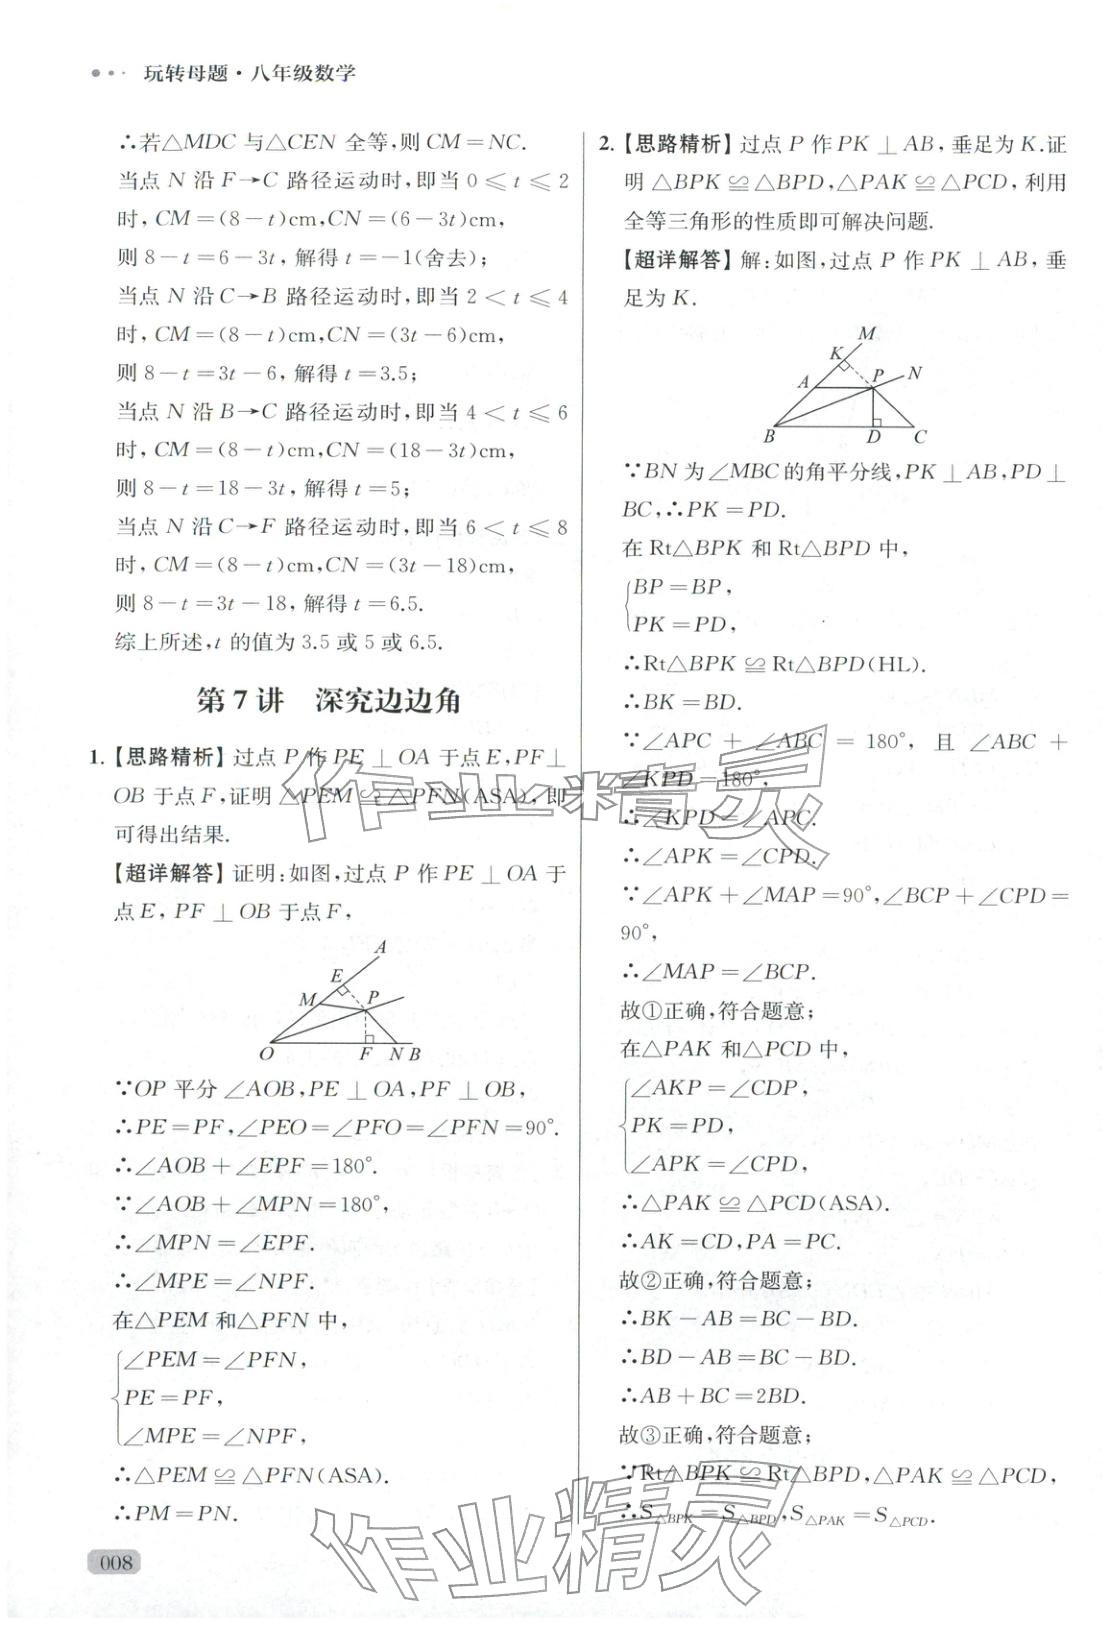 玩转母题·八年级数学
∴若△MDC 与△CEN 全等,则 CM=NC.
当点 N 沿 F→C 路径运动时,即当 0⩽t⩽2
时,CM=(8-t)cm,CN=(6-3t)cm,
则 8-t=6-3t,解得 t=-1(舍去);
当点 N 沿 C→B 路径运动时,即当 2<t⩽4
时,CM=(8-t)cm,CN=(3t-6)cm,
则 8-t=3t-6,解得 t=3.5;
当点 N 沿 B→C 路径运动时,即当 4<t⩽6
时,CM=(8-t)cm,CN=(18-3t)cm,
则 8-t=18-3t,解得 t=5;
当点 N 沿 C→F 路径运动时,即当 6<t⩽8
时,CM=(8-t)cm,CN=(3t-18)cm,
则 8-t=3t-18,解得 t=6.5.
综上所述,t 的值为 3.5 或 5 或 6.5.
第 7 讲 深究边边角
1.【思路精析】过点 P 作 PE⊥OA 于点 E,PF⊥
OB 于点 F,证明△PEM≌△PFN(ASA),即
可得出结果.
【超详解答】证明:如图,过点 P 作 PE⊥OA 于
点 E,PF⊥OB 于点 F,
A
E
M
P
O
F
N
B
∵OP 平分∠AOB,PE⊥OA,PF⊥OB,
∴PE=PF,∠PEO=∠PFO=∠PFN=90°.
∴∠AOB+∠EPF=180°.
∵∠AOB+∠MPN=180°,
∴∠MPN=∠EPF.
∴∠MPE=∠NPF.
在△PEM 和△PFN 中,
∠PEM=∠PFN,
PE=PF,
∠MPE=∠NPF,
∴△PEM≌△PFN(ASA).
∴PM=PN.
008
2.【思路精析】过点 P 作 PK⊥AB,垂足为 K.证
明△BPK≌△BPD,△PAK≌△PCD,利用
全等三角形的性质即可解决问题.
【超详解答】解:如图,过点 P 作 PK⊥AB,垂
足为 K.
M
K
A
P
N
B
D
C
∵BN 为∠MBC 的角平分线,PK⊥AB,PD⊥
BC,∴PK=PD.
在 Rt△BPK 和 Rt△BPD 中,
BP=BP,
PK=PD,
∴Rt△BPK≌Rt△BPD(HL).
∴BK=BD.
∵∠APC+∠ABC=180°,且∠ABC+
∠KPD=180°,
∴∠KPD=∠APC.
∴∠APK=∠CPD.
∵∠APK+∠MAP=90°,∠BCP+∠CPD=
90°,
∴∠MAP=∠BCP.
故①正确,符合题意;
在△PAK 和△PCD 中,
∠AKP=∠CDP,
PK=PD,
∠APK=∠CPD,
∴△PAK≌△PCD(ASA).
∴AK=CD,PA=PC.
故②正确,符合题意;
∴BK-AB=BC-BD.
∴BD-AB=BC-BD.
∴AB+BC=2BD.
故③正确,符合题意;
∵Rt△BPK≌Rt△BPD,△PAK≌△PCD,
∴S△BPK=S△BPD,S△PAK=S△PCD.
作业精灵
作业精灵